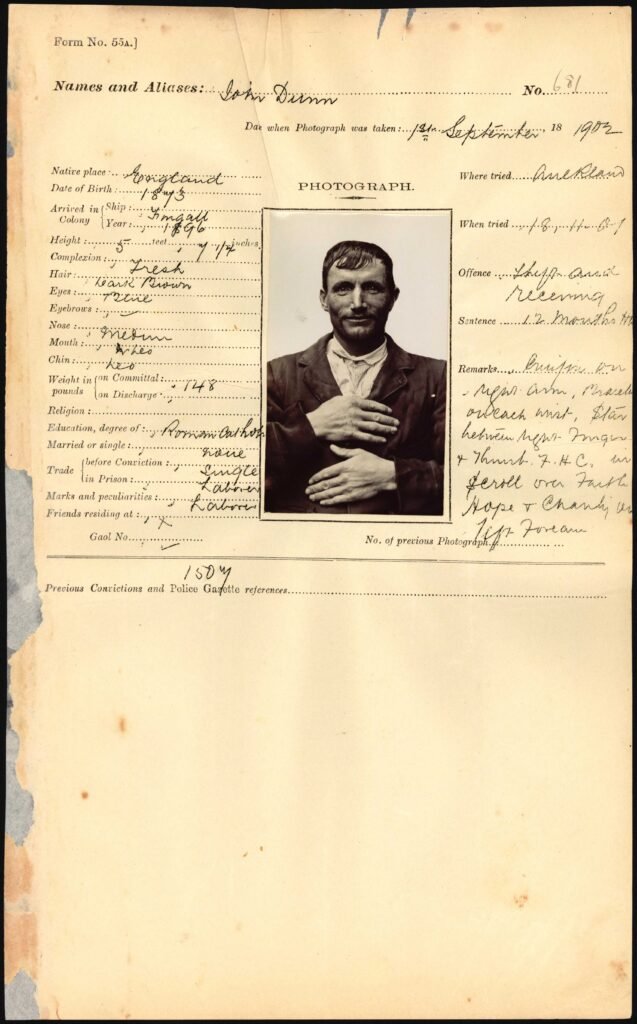 Form No. 55A.]
Names and Aliases: John Dunn No. 681
Date when Photograph was taken: 1st September 18 1902
Native place England
Date of Birth: 1873
Arrived in Colony { Ship: Fingall
Year: 1896
Height: 5 feet 7 1/4 inches
Complexion: Fresh
Hair: Dark Brown
Eyes: Blue
Eyebrows:
Nose: Medium
Mouth:
Chin:
Weight in pounds { on Committal: 148
on Discharge:
Religion:
Education, degree of: Roman Cathol
Married or single:
Trade { before Conviction: Single
in Prison: Laborer
Marks and peculiarities: Laborer
Friends residing at: X
Gaol No.
PHOTOGRAPH.
Where tried Auckland
When tried 18.11.01
Offence Theft and
receiving
Sentence 12 Months
Remarks Crucifix on
right arm, Bracel
on each wrist, Star
between right Finger
& Thumb. F.H.C. in
Scroll over Faith
Hope & Charity on
left Forearm
No. of previous Photograph
1507
Previous Convictions and Police Gazette references